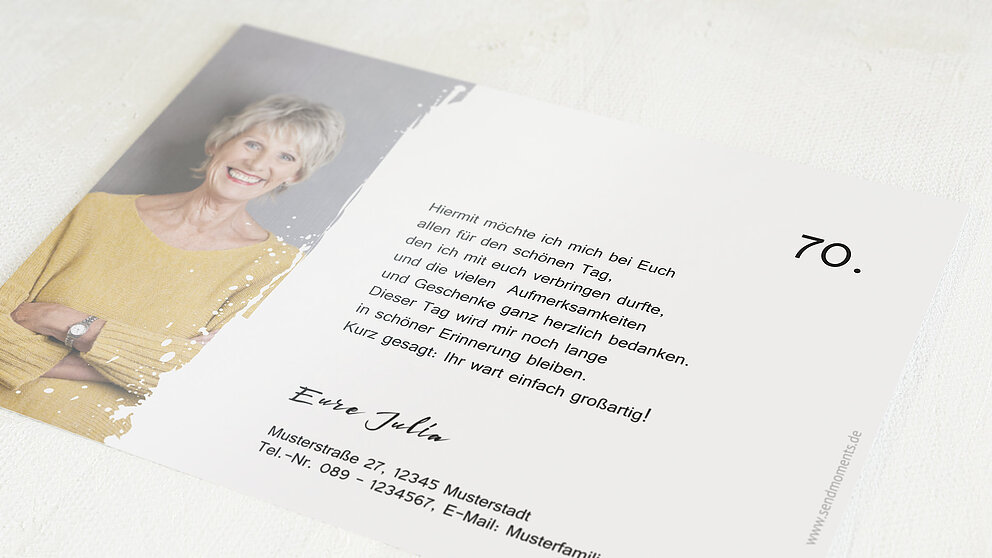 Hiermit möchte ich mich bei Euch
allen für den schönen Tag,
den ich mit euch verbringen durfte,
und die vielen Aufmerksamkeiten
und Geschenke ganz herzlich bedanken.
Dieser Tag wird mir noch lange
in schöner Erinnerung bleiben.
Kurz gesagt: Ihr wart einfach großartig!
70.
Eure Julia
Musterstraße 27, 12345 Musterstadt
Tel.-Nr. 089 - 1234567, E-Mail: Musterfamili
www.sendmoments.de